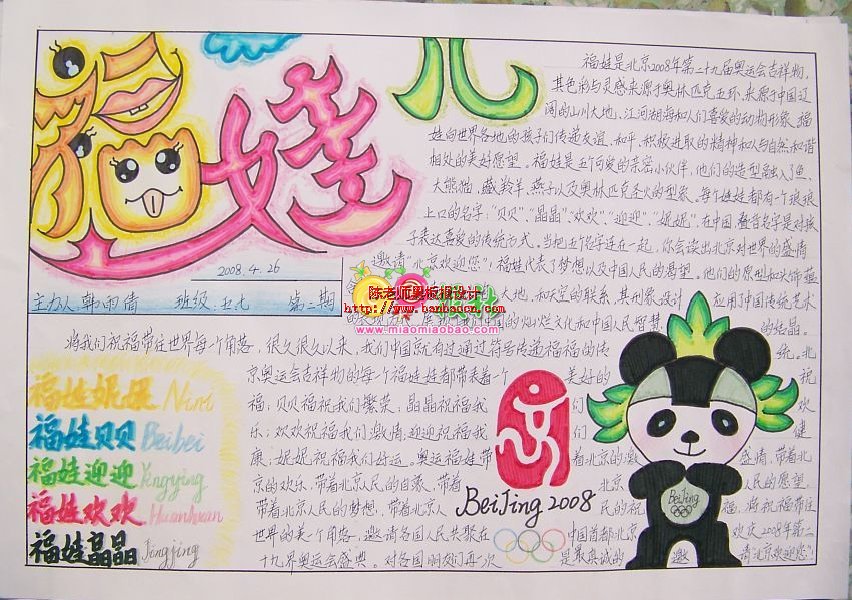 福娃儿
福娃是北京2008年第二十九届奥运会吉祥物,
其色彩与灵感来源于奥林匹克五环,来源于中国辽
阔的山川大地、江河湖海和人们喜爱的动物形象。福
娃向世界各地的孩子们传递友谊、和平、积极进取的精神和人与自然和谐
相处的美好愿望。福娃是五个可爱的亲密小伙伴,他们的造型融入了鱼、
大熊猫、藏羚羊、燕子以及奥林匹克圣火的型象。每个娃娃都有一个琅琅
上口的名字:“贝贝”、“晶晶”、“欢欢”、“迎迎”、“妮妮”,在中国,叠音名字是对孩
子表达喜爱的传统方式。当把五个名字连在一起,你会读出北京对世界的盛情
邀请“北京欢迎您”!福娃代表了梦想以及中国人民的渴望。他们的原型和头饰蕴
大地、和天空的联系,其形象设计 应用了中国传统艺术
的灿烂文化和中国人民智慧 的结晶。
2008.4.26
主办人 韩雨倩 班级 五七 第二期
陈老师黑板报设计
www.banbaodw.com
www.miaomiaobao.com
将我们祝福带往世界每个角落,很久很以来,我们中国就有过通过符号传递福福的传 统。北
京奥运会吉祥物的每个福娃娃都带来着一个 美好的 祝
福:贝贝福祝我们繁荣;晶晶祝福我 们 欢
乐;欢欢祝福我们激情;迎迎祝福我 们 健
康;妮妮祝福我们好运。奥运福娃带 着北京的激 盛情,带着北
京的欢乐,带着北京人民的自豪,带着 北京 人民的愿望
带着北京人民的梦想,带着北京人 民的祝 福,将祝福带往
世界的某个角落,邀请各国人民共聚在 中国首都北京 欢庆2008年第二
十九界奥运会盛典。对各国朋友们再次 是最真诚的 邀 请“北京欢迎您”!
福娃妮妮 Nini
福娃贝贝 Beibei
福娃迎迎 Yingying
福娃欢欢 Huanhuan
福娃晶晶 Jingjing
BeiJing 2008
BeiJing